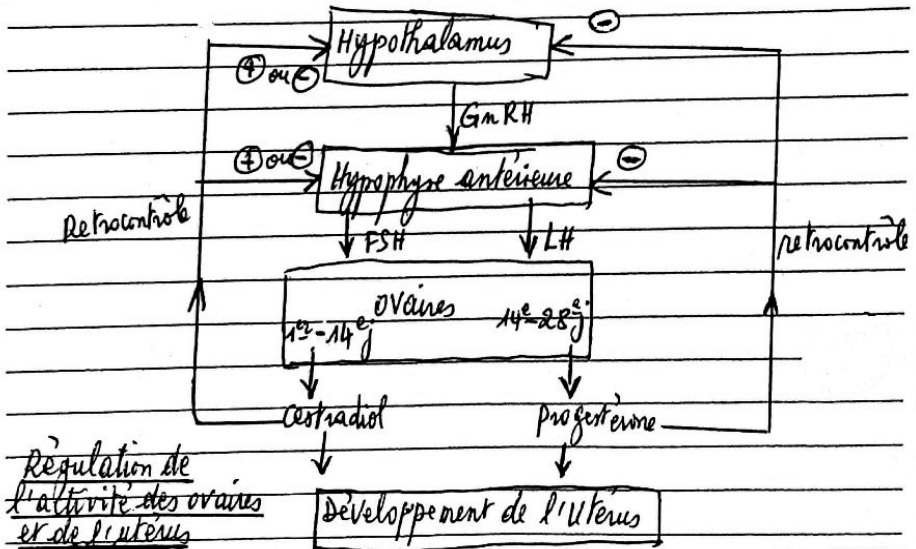 Hypothalamus
⊖
⊕ ou ⊖
GnRH
⊕ ou ⊖
⊖
Hypophyse antérieure
Retrocontrôle
FSH
LH
retrocontrôle
ovaires
1er-14e j
14e-28e j
Oestradiol
Progestérone
Régulation de
l'activité des ovaires
et de l'utérus
Développement de l'Utérus